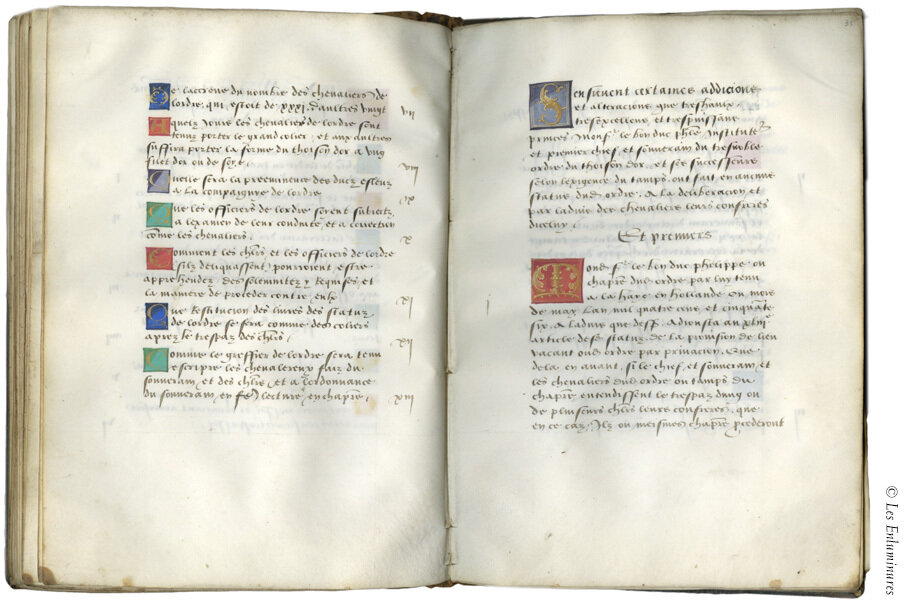 De laccrone du nombre des chevaliers de
lordre, qui estoit de xxxi. daultres vingt
vii
A quelz Jours les chevaliers de lordre sont
tenuz porter le grand colier, et aux aultres
suffira porter la forme du thoison dor a ung
fillet dor ou de soye.
viii
Quelle sera la preeminence des ducz esleuz
a La compaignie de lordre
ix
Que les officiers de lordre soient subiectz
a lexamen de leur conduite, et a correction
come les chevaliers.
x
Comment les chlrs et les officiers de lordre
silz deliquassent, pourroient estre
apprehendez. Des solemnitez
la maniere de proceder contre eulx
xi
Que Restitucion des livres des statuz
de lordre se fera comme des coliers
aprez le trespaz des chlrs.
xii
Comme le greffier de lordre sera tenu
escripre les chevalereux faiz du
souverain, et des chlrs, et a lordonnance
du souverain, en fere lecture, en chapre.
xiii
35
Sensuivent certaines addicions
et alteracions que treshaux,
tresexcellens, et trespuissans
princes Monsr. le bon duc phle Instituteur
et premier chief, et souverain du tresnoble
ordre du thoison dor, et ses successeurs
selon lexigence du tamps, ont fait en anciens
statuz dud. ordre. A la deliberacion et
par ladvis des chevaliers leurs confreres
dicelluy.
Et premiers
Mond. sr. le bon duc philippe ou
chapre dud. ordre par luy tenu
a la haye en hollande ou mois
de may Lan mil quatre cens et cinquante
six. A ladvis que dess. Adiousta au xliiie
article desd. statuz de la provision de lieu
vacant oud. ordre par privacion. Que
dela en avant, si le chief, et souverain, et
les chevaliers dud. ordre ou tamps du
chapre entendissent le trespaz dung ou
de plusieurs chlrs leurs confreres, que
en ce cas, Ilz ou mesmes chapre procederont
© Les Enluminures